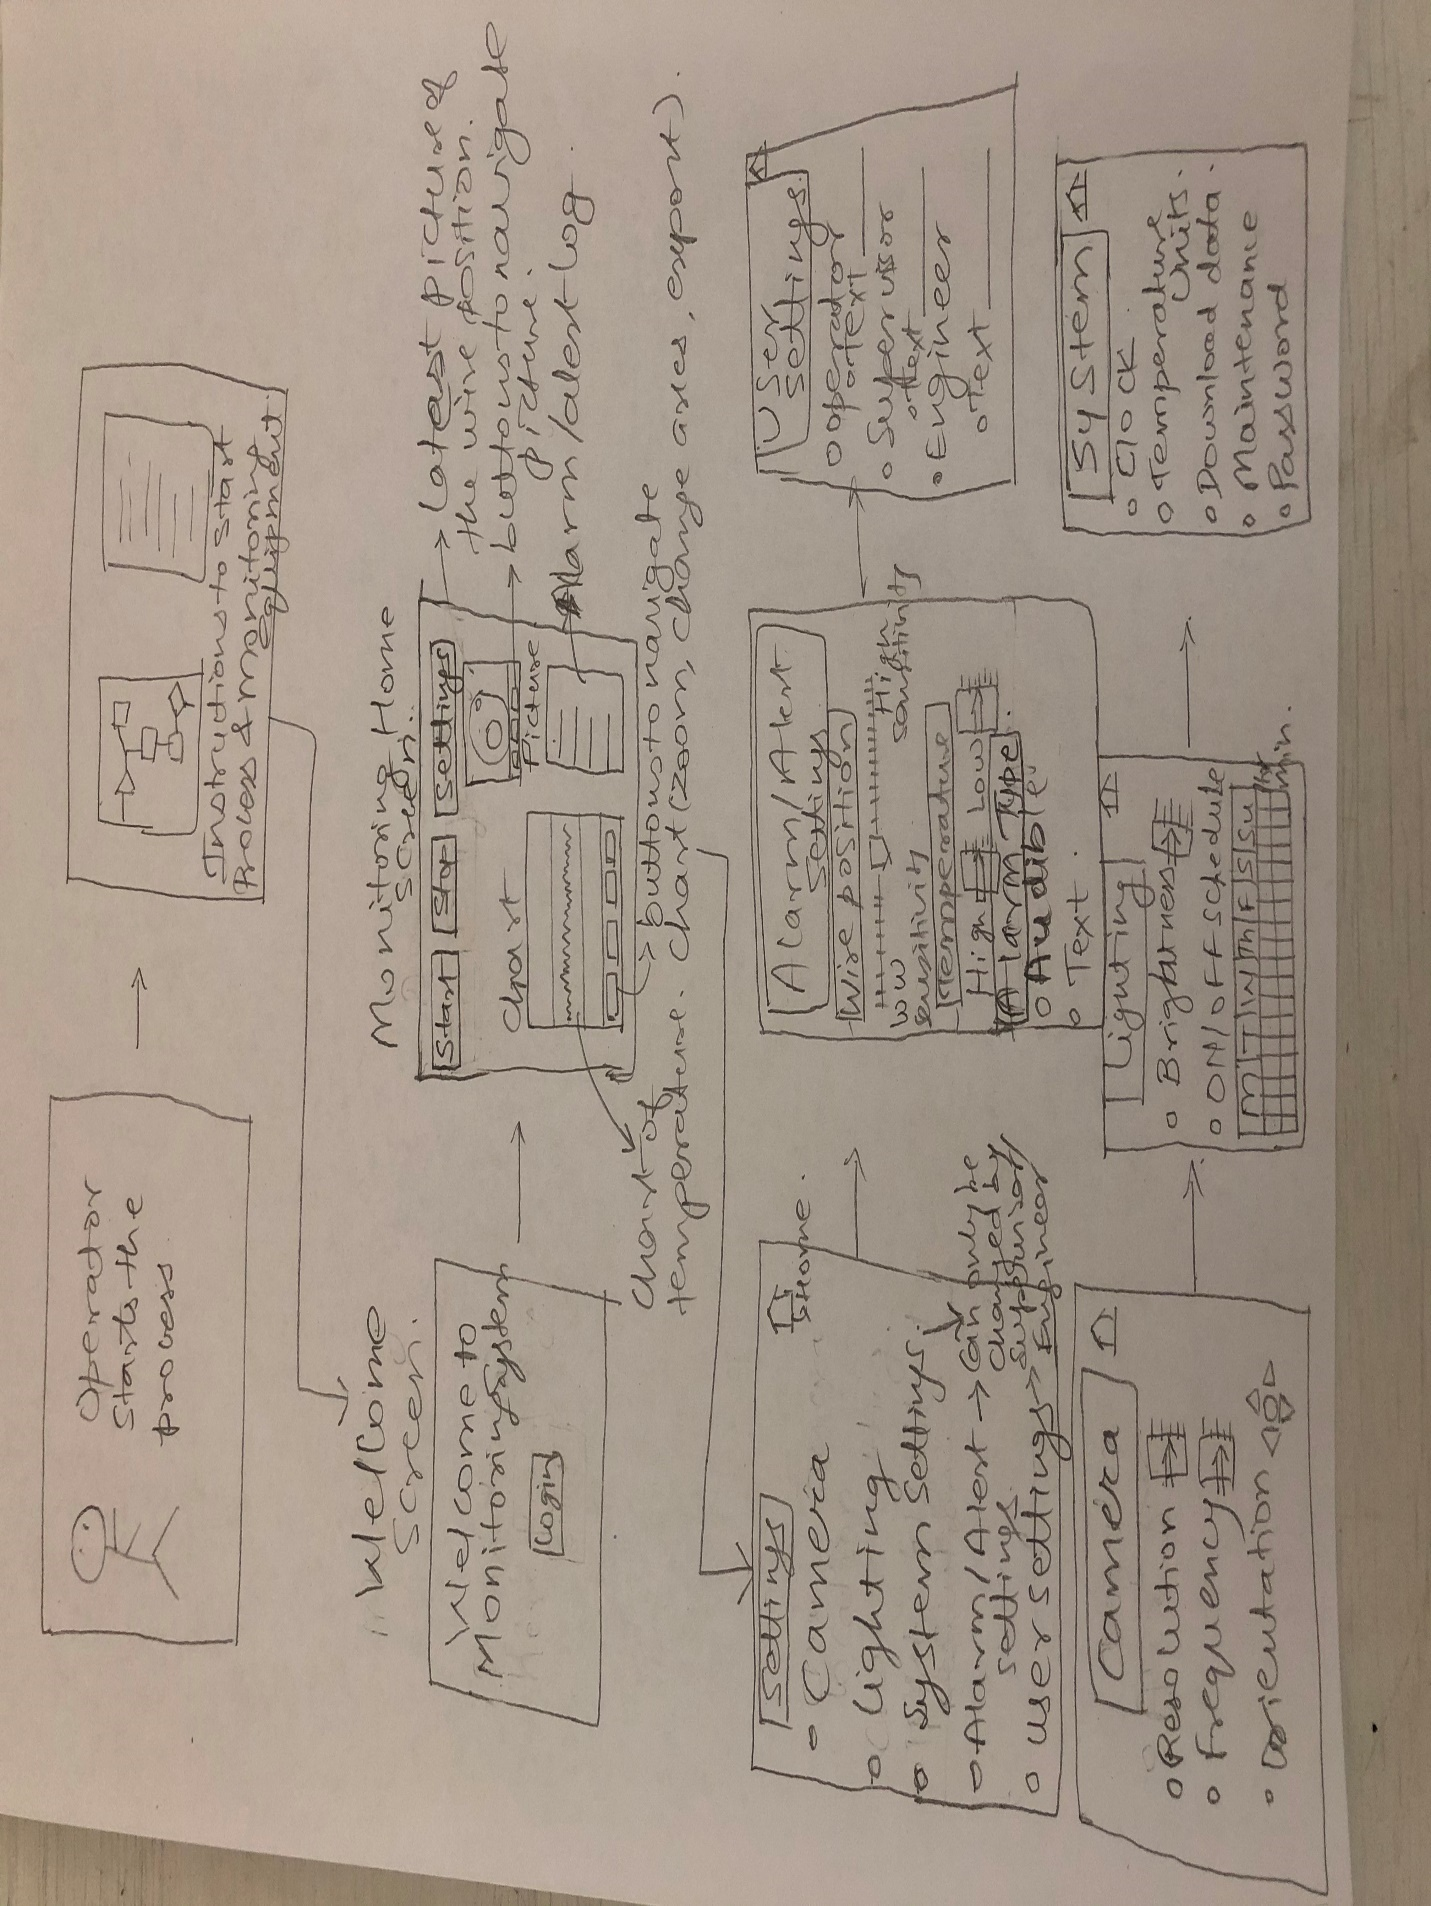 Operator
starts the
process
Instructions to start
Process & monitoring
equipment
Welcome
screen.
Welcome to
Monitoring system
Login
Monitoring Home
screen.
Start
Stop
Settings
Chart
Picture
Latest picture of
the wire position.
buttons to navigate
picture.
Alarm/alert log.
buttons to navigate
chart (zoom, change axes, export).
Chart of
temperature.
Settings
Home.
Camera
Lighting
System Settings.
Alarm/Alert
settings.
user settings
Can only be
changed by
supervisor/
Engineer
Alarm/Alert
Settings
Wire position
Low
sensitivity
High
sensitivity
Temperature
High
Low
Alarm Type.
Audible
Text.
User
settings.
Operator
Text
Supervisor
Text
Engineer
Text
Camera
Resolution
Frequency
Orientation
Lighting
Brightness
ON/OFF schedule
M T W Th F S Su
Hr
min.
System
Clock
Temperature
Units.
Download data.
Maintenance
Password